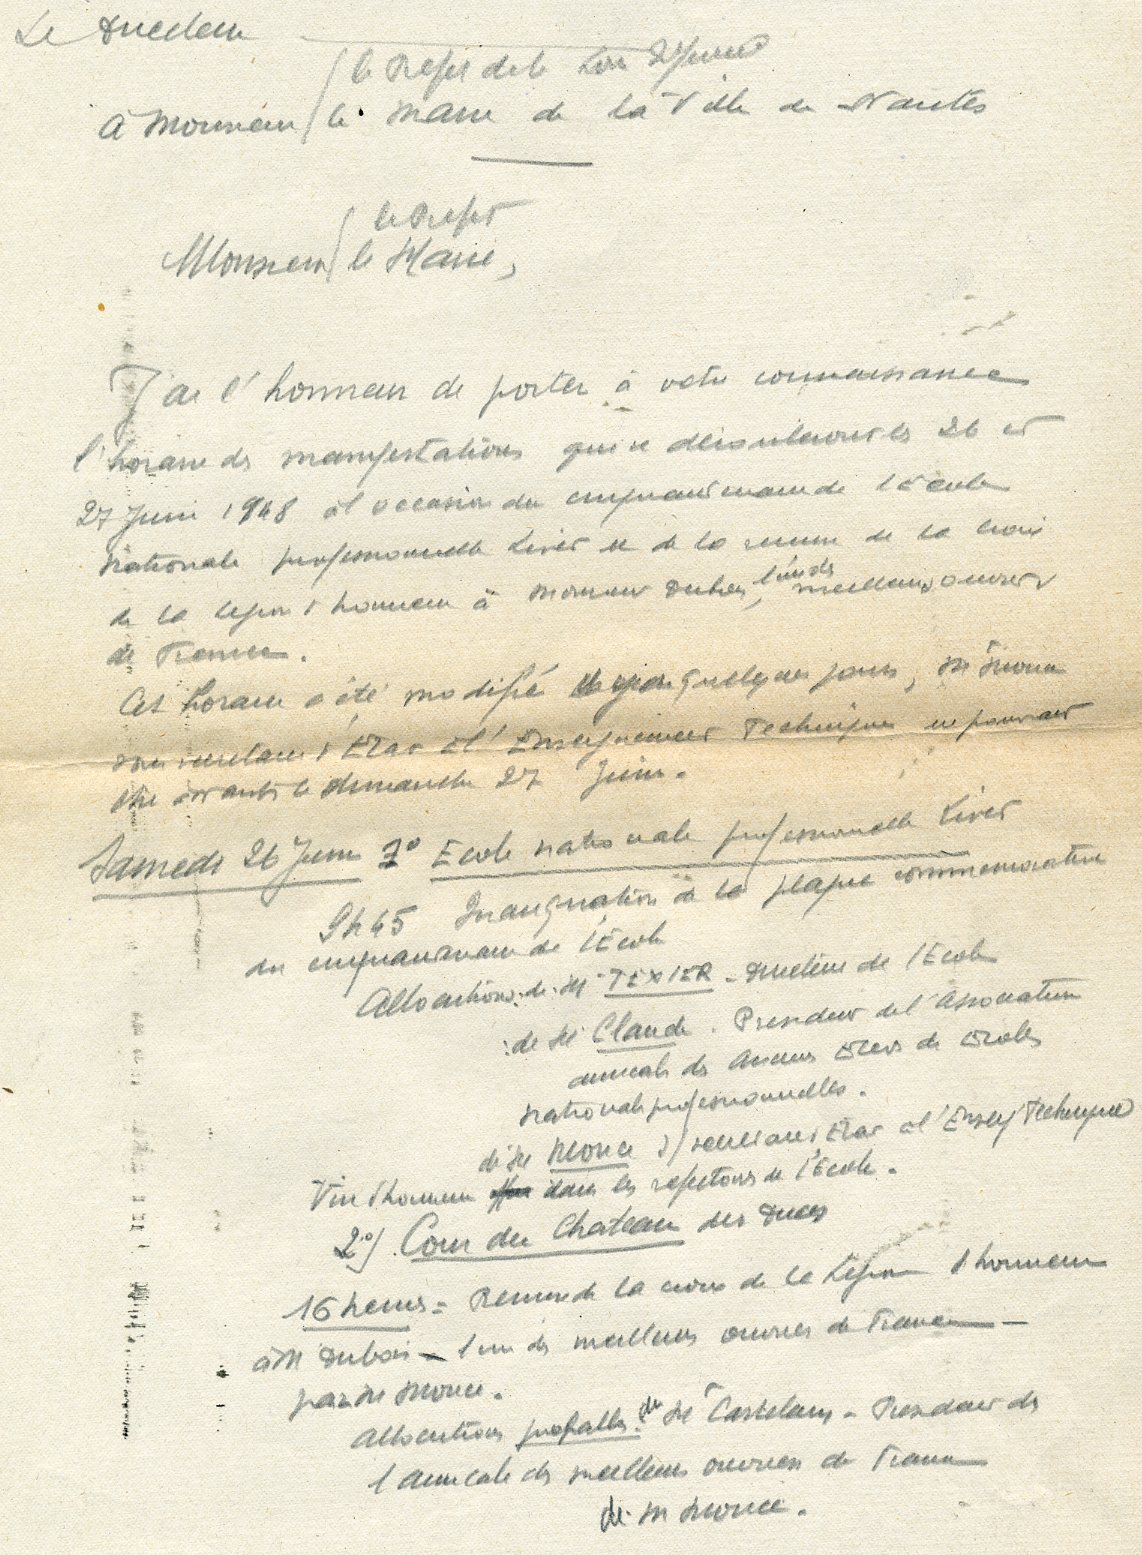 Le Directeur
le Préfet de la Loire Inférieure
à Monsieur le Maire de la Ville de Nantes
le Préfet
Monsieur le Maire,
J'ai l'honneur de porter à votre connaissance
l'horaire des manifestations qui se dérouleront les 26 et
27 Juin 1948 à l'occasion du cinquantenaire de l'Ecole
Nationale professionnelle Livet et de la remise de la croix
de la Légion d'honneur à Monsieur Dubois, l'un des meilleurs ouvriers
de France.
Cet horaire a été modifié depuis quelques jours, M
sous secrétaire d'Etat à l'Enseignement Technique ne pouvant
être à Nantes le dimanche 27 Juin.
Samedi 26 Juin 1° Ecole nationale professionnelle Livet
9h45 Inauguration de la plaque commémorative
du cinquantenaire de l'Ecole
Allocutions : de M TEXIER - Directeur de l'Ecole
: de M Claude. Président de l'Association
amicale des Anciens Elèves des Ecoles
Nationales professionnelles.
de M S/ secrétaire d'Etat à l'Enseigt Technique
Vin d'honneur dans les réfectoires de l'Ecole.
2°/. Cour du Chateau des Ducs
16 heures = Remise de la croix de la Légion d'honneur
à M Dubois - l'un des meilleurs ouvriers de France -
par M
Allocutions : de M Président de
l'amicale des meilleurs ouvriers de France
de M